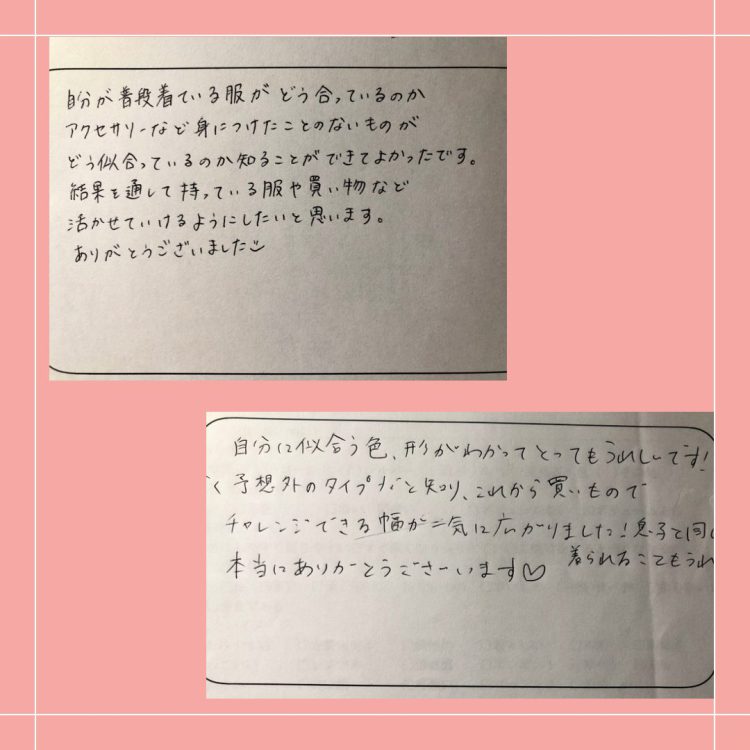 自分が普段着ている服が どう合っているのか
アクセサリーなど身につけたことのないものが
どう似合っているのか知ることができてよかったです。
結果を通して持っている服や買い物など
活かせていけるようにしたいと思います。
ありがとうございました
自分に似合う色、形がわかってとってもうれしいです!
く予想外のタイプだと知り、これから買いもので
チャレンジできる幅が一気に広がりました!息子と同じ
着られることもうれ
本当にありがとうございます♡